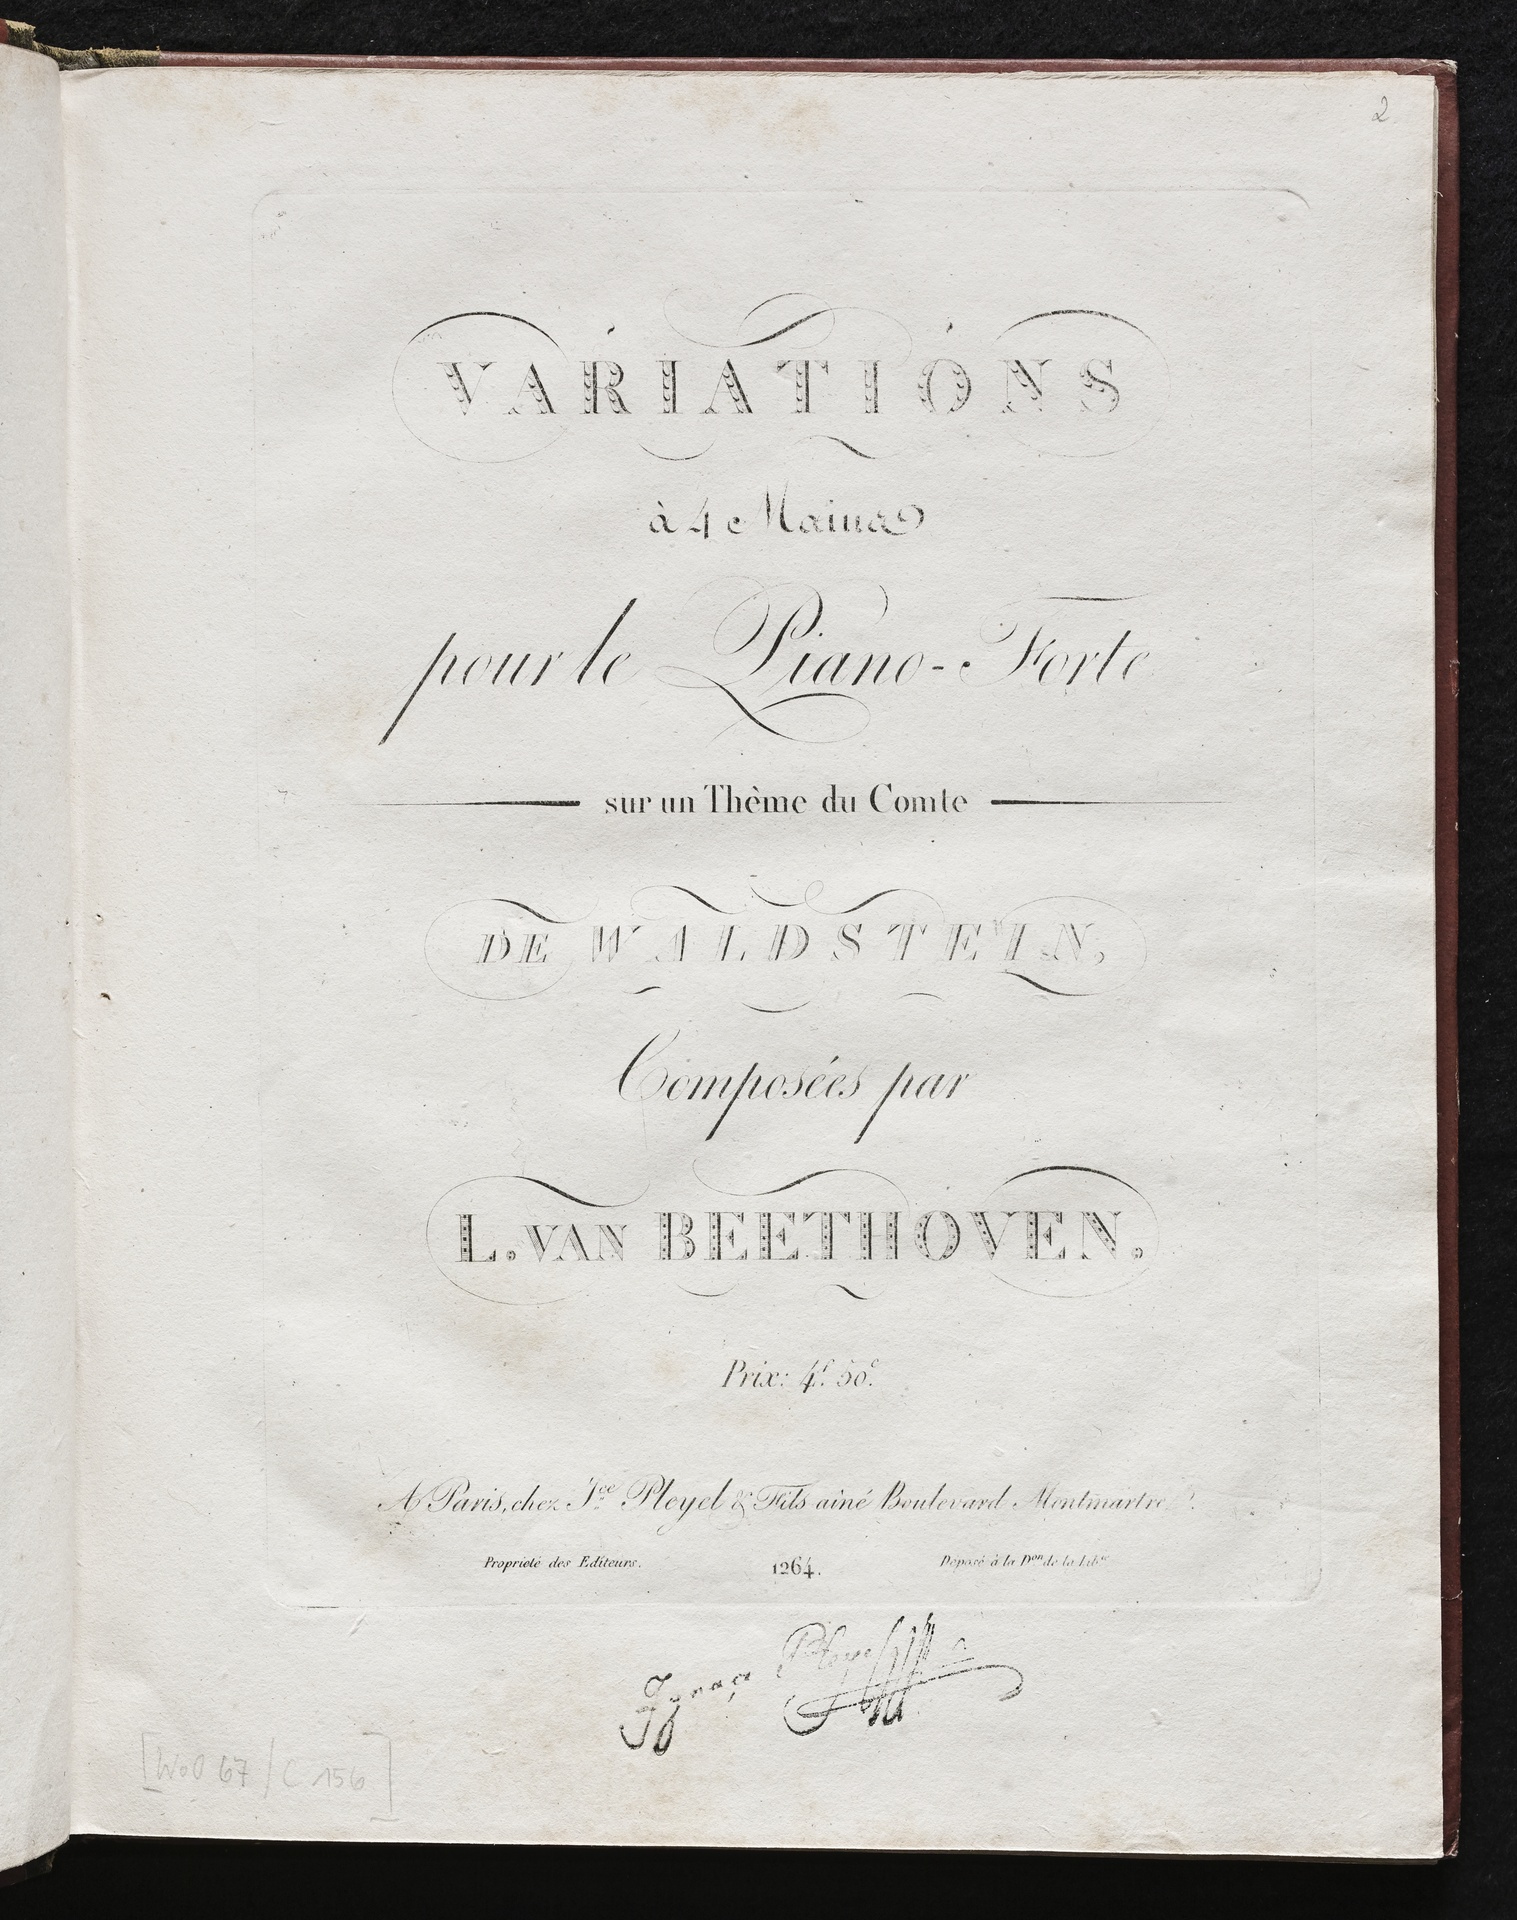 2
VARIATIONS
à 4 Mains
pour le Piano-Forte
sur un Thême du Comte
DE WALDSTEIN,
Composées par
L. VAN BEETHOVEN.
Prix: 4f. 50c.
A Paris, chez Ice Pleyel & Fils aîné Boulevard Montmartre
Propriété des Editeurs. 1264. Déposé à la Don de la Librie
Ignace Pleyel
[WoO 67 / C 156]